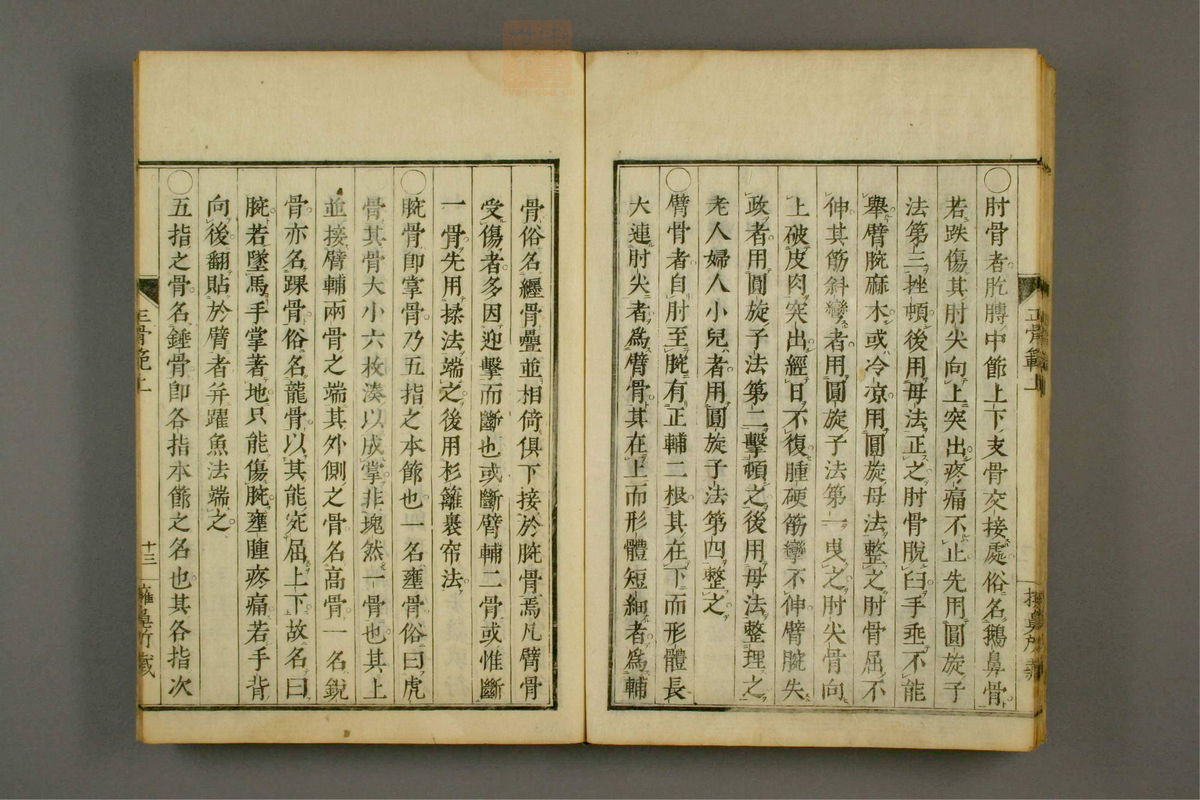 〇肘骨者肐膊中節上下支骨交接處俗名鵝鼻骨
若跌傷其肘尖向上突出疼痛不止先用圓旋子
法第三挫頓後用母法正之肘骨脫臼手垂不能
舉臂腕麻木或冷凉用圓旋母法整之肘骨屈不
伸其筋斜彎者用圓旋子法第一曳之肘尖骨向
上破皮肉突出經日不復腫硬筋攣不伸臂腕失
政者用圓旋子法第二擊頓之後用母法整理之
老人婦人小兒者用圓旋子法第四整之
〇臂骨者自肘至腕有正輔二根其在下而形體長
大連肘尖者爲臂骨其在上而形體短細者爲輔
骨俗名纏骨疊並相倚俱下接於腕骨焉凡臂骨
受傷者多因迎擊而斷也或斷臂輔二骨或惟斷
一骨先用揉法端之後用杉籬裹帘法
〇腕骨卽掌骨乃五指之本節也一名壅骨俗曰虎
骨其骨大小六枚湊以成掌非塊然一骨也其上
並接臂輔兩骨之端其外側之骨名高骨一名銳
骨亦名踝骨俗名龍骨以其能宛屈上下故名曰
腕若墜馬手掌著地只能傷腕壅腫疼痛若手背
向後翻貼於臂者弁躍魚法端之
〇五指之骨名錘骨卽各指本節之名也其各指次
正骨範上
十三